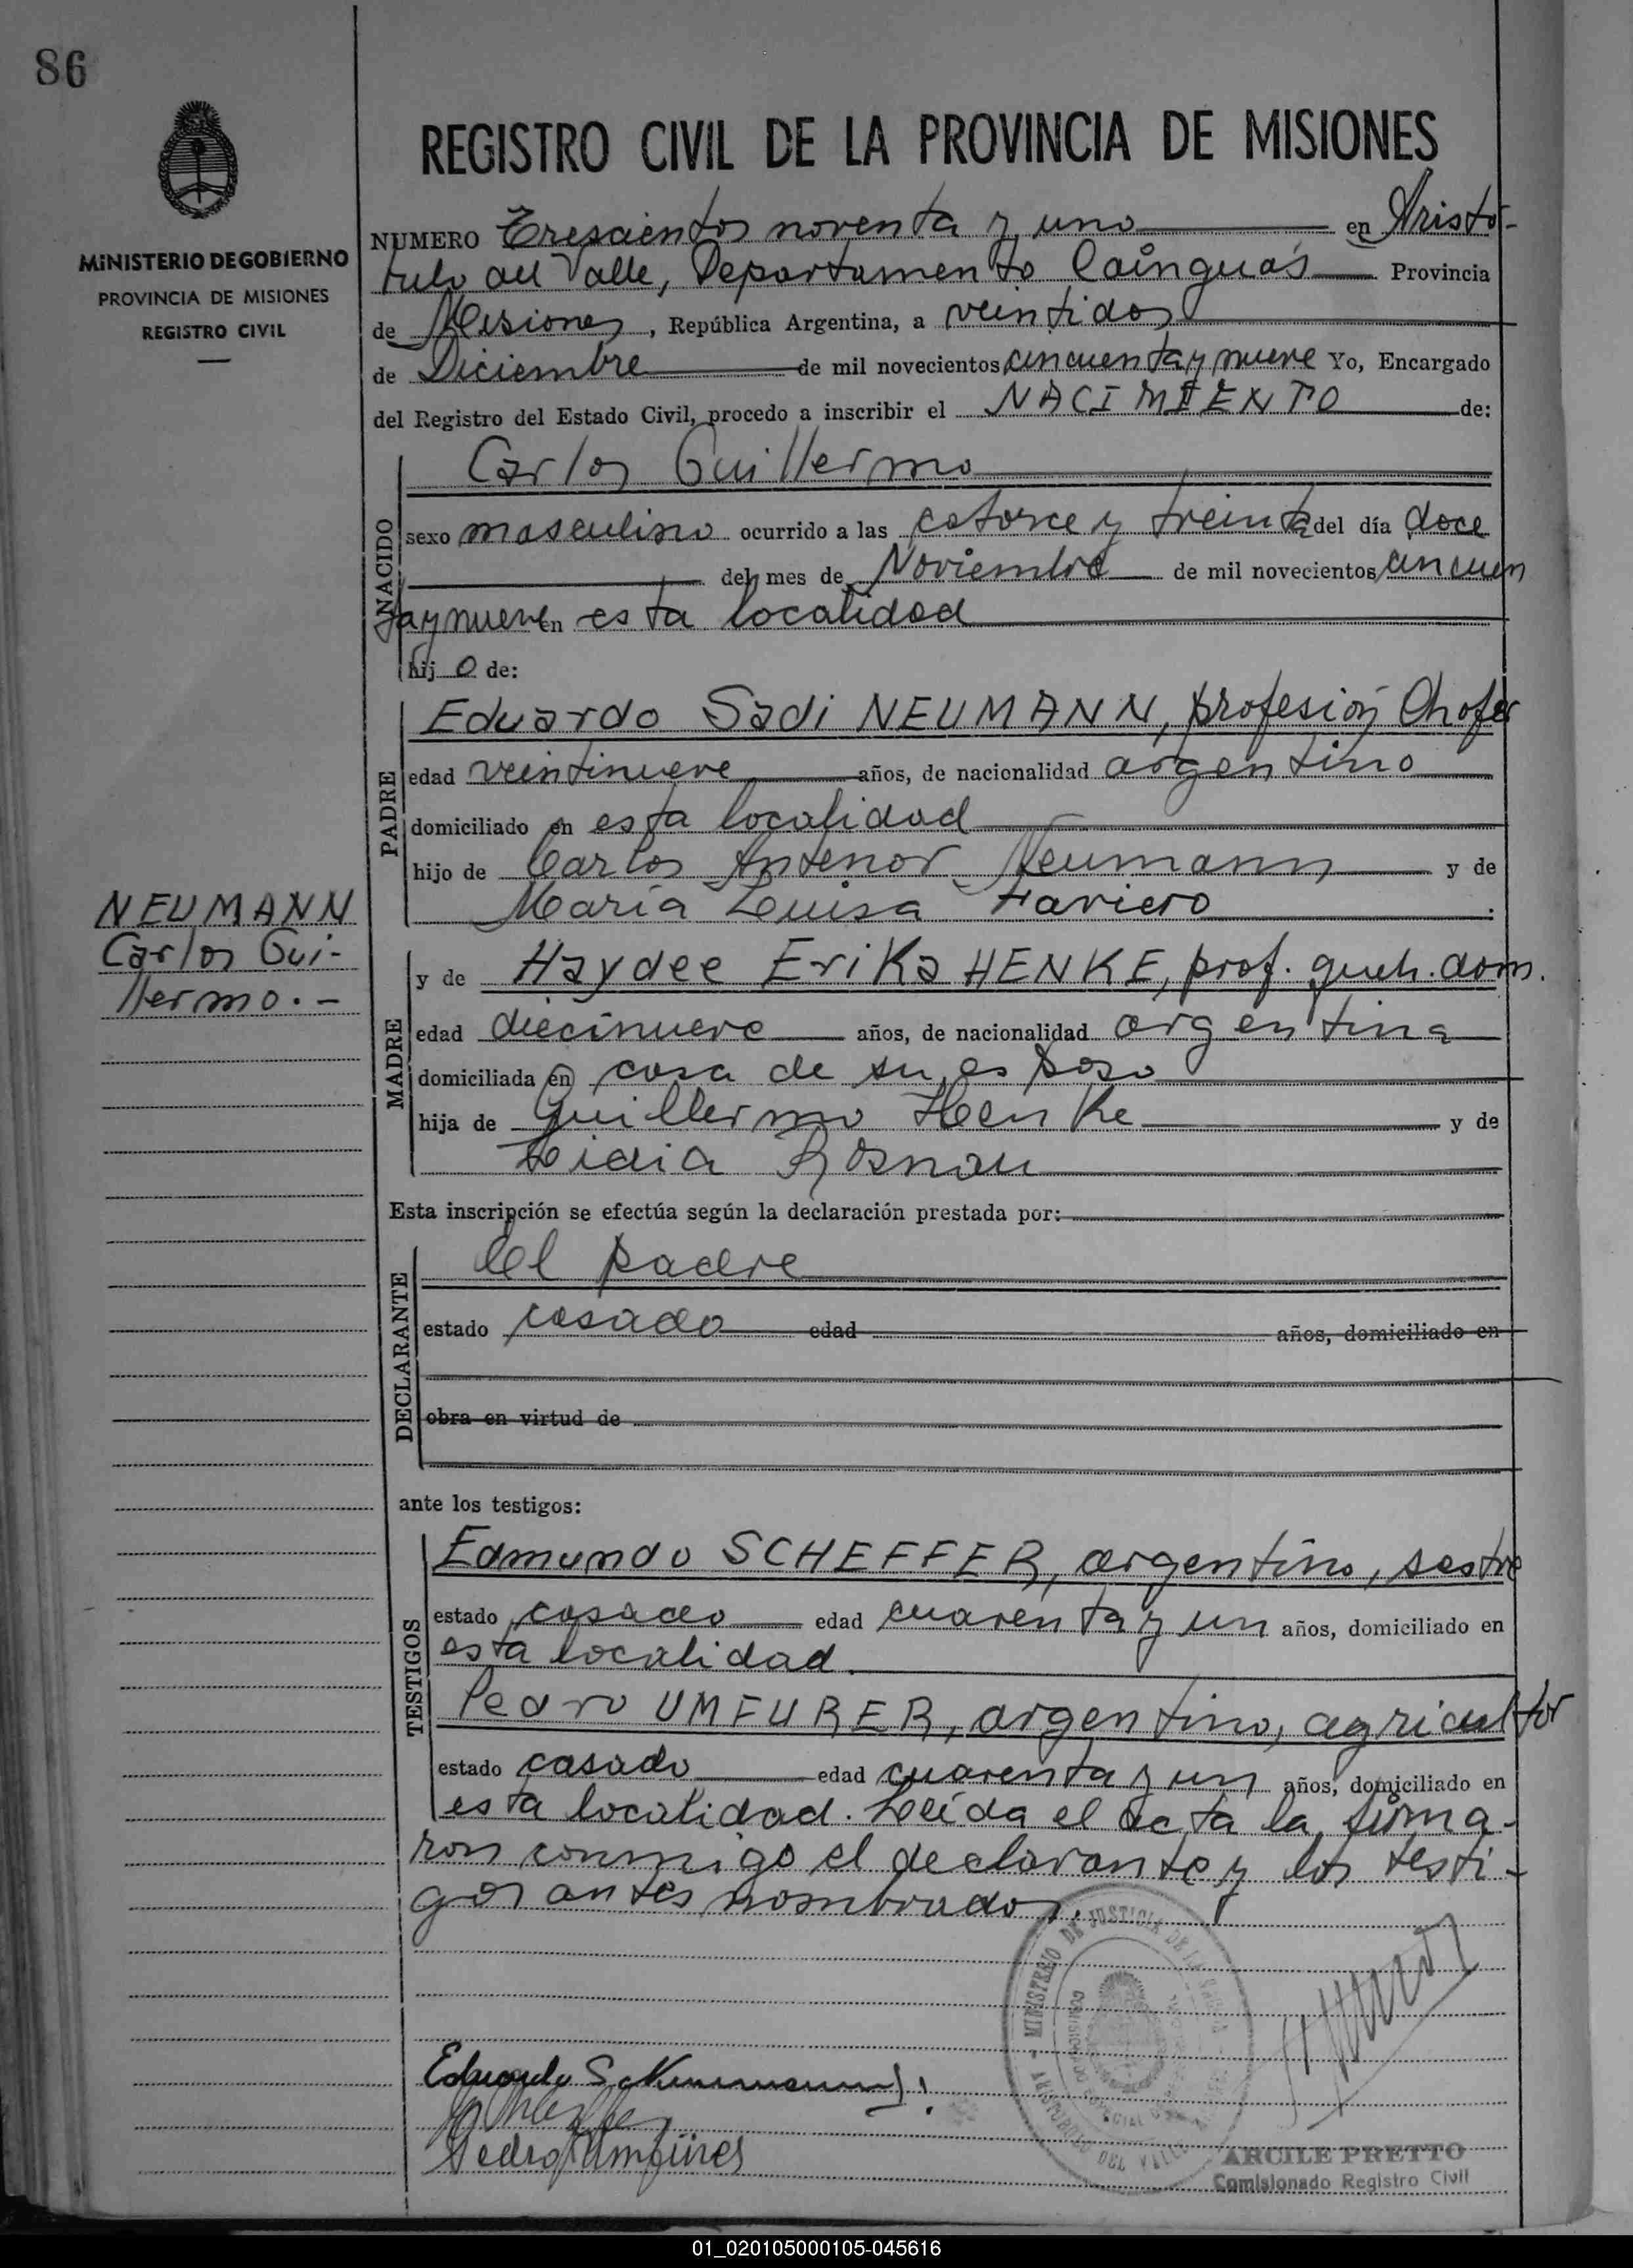 86
MINISTERIO DE GOBIERNO
PROVINCIA DE MISIONES
REGISTRO CIVIL
REGISTRO CIVIL DE LA PROVINCIA DE MISIONES
NUMERO Trescientos noventa y uno en Aristó-
bulo del Valle, Departamento Cainguás Provincia
de Misiones, República Argentina, a veintidos
de Diciembre de mil novecientos cincuenta y nueve Yo, Encargado
del Registro del Estado Civil, procedo a inscribir el NACIMIENTO de:
NACIDO
Carlos Guillermo
sexo masculino ocurrido a las catorce y treinta del día doce
del mes de Noviembre de mil novecientos cincuen
ta y nueve en esta localidad
hijo de:
PADRE
Eduardo Sadi NEUMANN, profesión Chofer
edad veintinueve años, de nacionalidad argentino
domiciliado en esta localidad
hijo de Carlos Antenor Neumann y de
María Luisa Faviero
NEUMANN
Carlos Gui-
llermo.-
MADRE
y de Haydee Erika HENKE, prof. queh. dom.
edad diecinueve años, de nacionalidad argentina
domiciliada en casa de su esposo
hija de Guillermo Henke y de
Lidia Rosnau
Esta inscripción se efectúa según la declaración prestada por:
DECLARANTE
El padre
estado casado edad años, domiciliado en
obra en virtud de
ante los testigos:
TESTIGOS
Edmundo SCHEFFER, argentino, sastre
estado casado edad cuarenta y un años, domiciliado en
esta localidad.
Pedro UMFURER, argentino, agricultor
estado casado edad cuarenta y un años, domiciliado en
esta localidad. Leída el acta la firma-
ron conmigo el declarante y los testi-
gos antes nombrados.
MINISTERIO DE JUSTICIA DE LA
ARISTOBULO DEL VALLE
Eduardo S. Neumann
Pedro Umfürer
ARCILE PRETTO
Comisionado Registro Civil
01_020105000105-045616